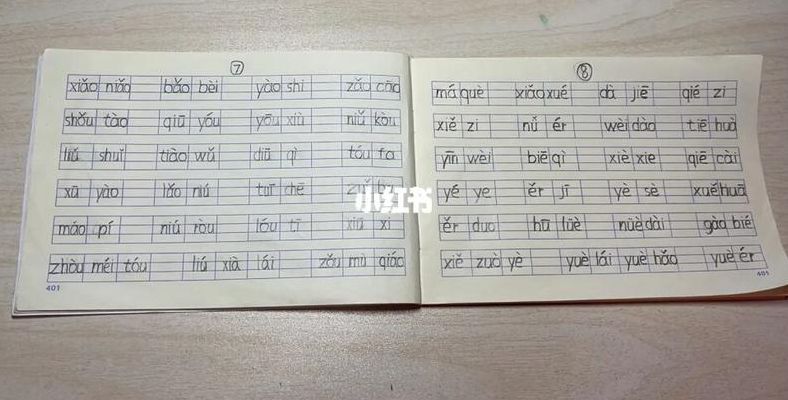 ⑦
xiǎo niǎo bǎo bèi yào shi zǎo cāo
shǒu tào qiū yóu yōu xiù niǔ kòu
liú shuǐ tiào wǔ diū qì tóu fa
xū yào lǎo niú tuī chē
máo pí niú ròu lóu tī xiū xi
zhòu méi tóu liú xià lái zǒu mù qiáo
401
⑧
má què xiǎo xué dà jiē qié zi
xiě zi nǚ ér wèi dào tiē huà
yīn wèi biē qì xiè xie qiē cài
yé ye ěr jī yè sè xuě huā
ěr duo hū lüè nüè dài gào bié
xiě zuò yè yuè lái yuè hǎo yuè ér
401
小红书